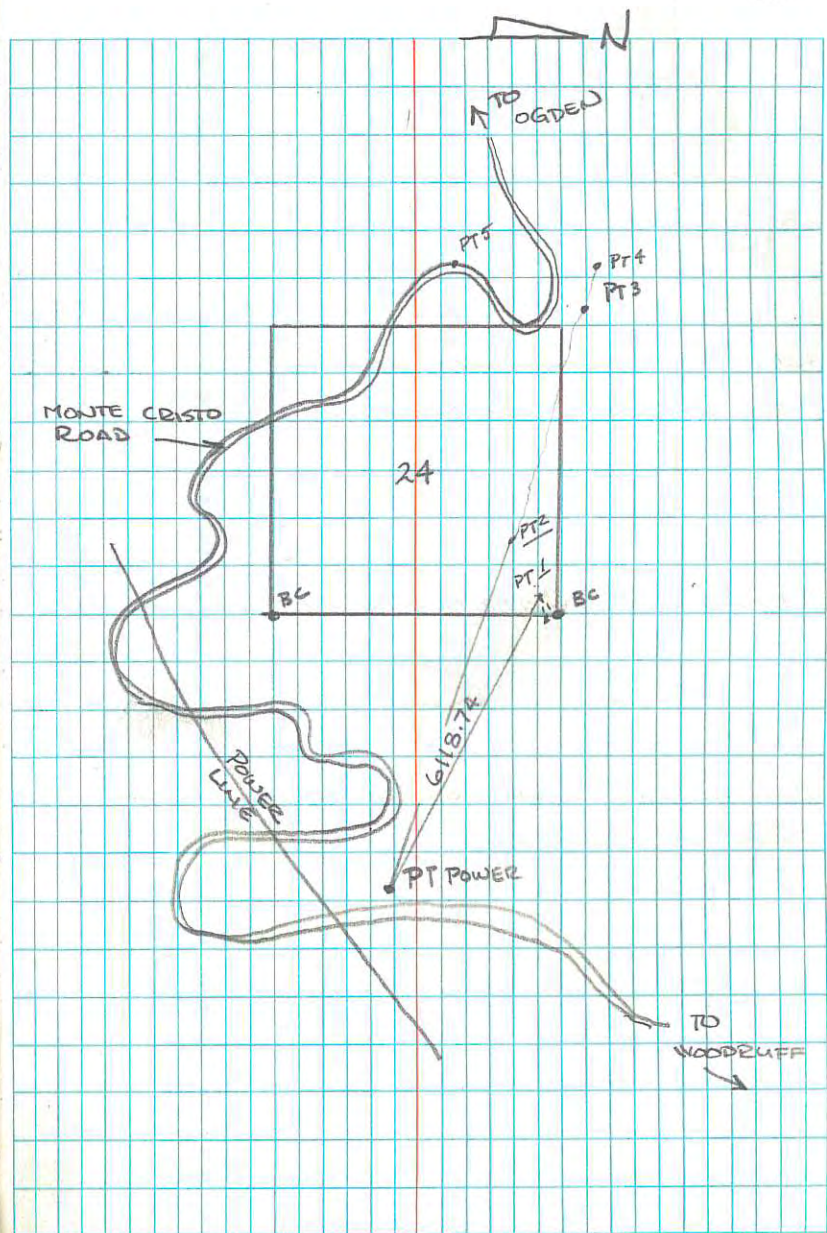 N
TO
OGDEN
PT5
PT4
PT3
MONTE CRISTO
ROAD
24
PT2
PT.1
BC
BC
6118.74
POWER
LINE
PT POWER
TO
WOODRUFF